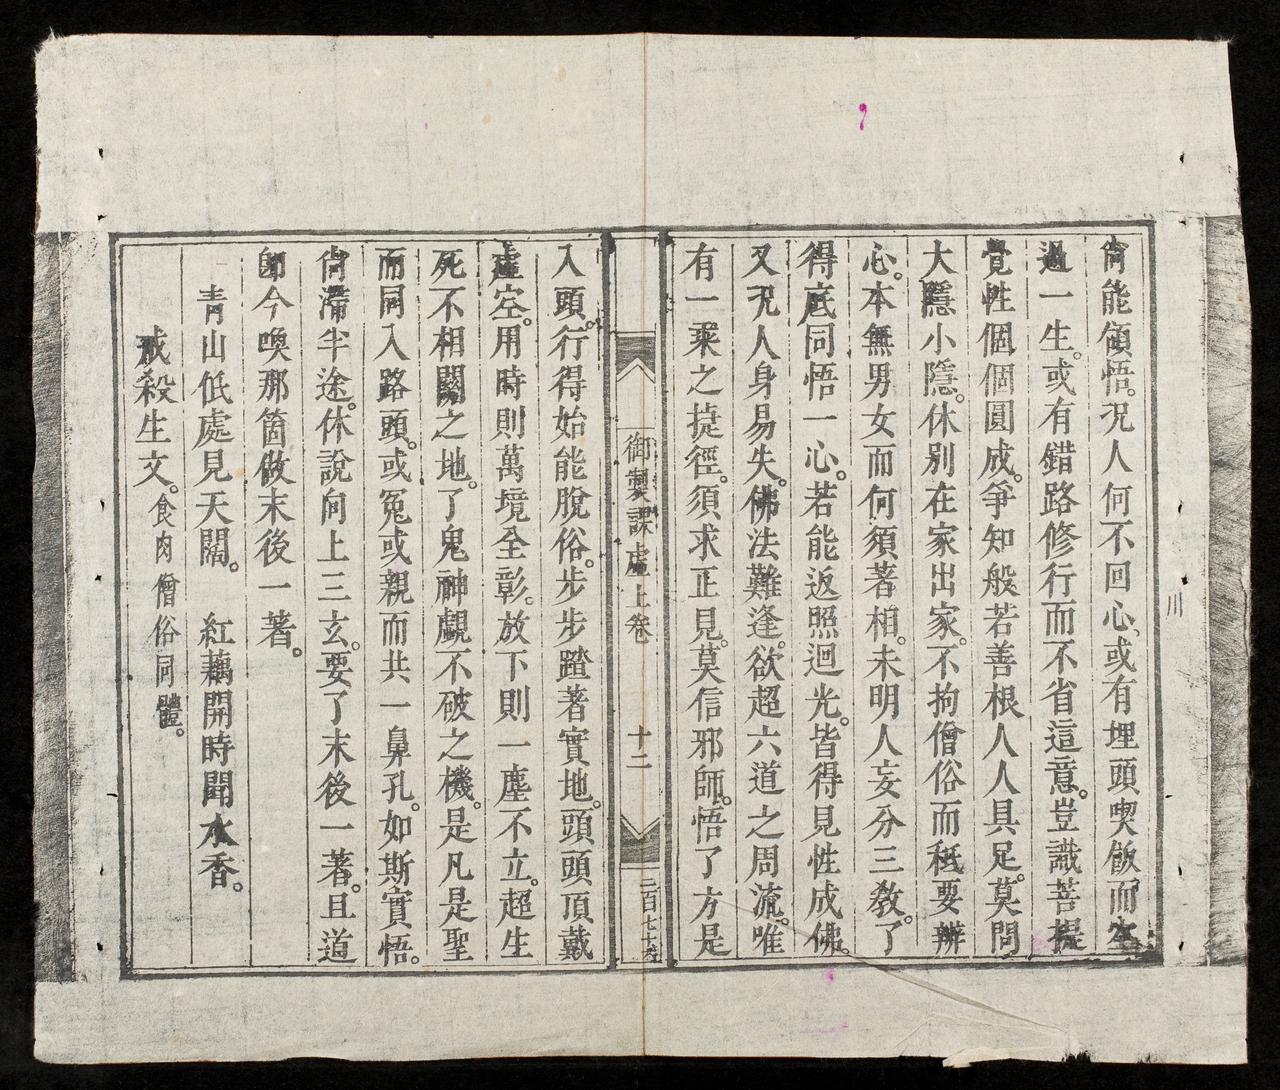 尙能領悟。况人何不回心、或有埋頭喫飯而空
過一生。或有錯路修行而不省這意。豈識菩提
覺性個個圓成。爭知般若善根人人具足。莫問
大隱小隱。休別在家出家。不拘僧俗而秪要辨
心。本無男女而何須著相。未明人妄分三教。了
得底同悟一心。若能返照迴光。皆得見性成佛。
又况人身易失。佛法難逢。欲超六道之周流。唯
有一乘之捷徑。須求正見。莫信邪師。悟了方是
御製課虛上卷
十二
二百七十六
入頭。行得始能脫俗。步步踏著實地。頭頭頂戴
虛空。用時則萬境全彰。放下則一塵不立。超生
死不相關之地。了鬼神覰不破之機。是凡是聖
而同入路頭。或冤或親而共一鼻孔。如斯實悟。
尙滯半途。休說向上三玄。要了末後一著。且道
卽今喚那箇做末後一著。
青山低處見天闊。 紅藕開時聞水香。
戒殺生文。食肉僧俗同體。
川